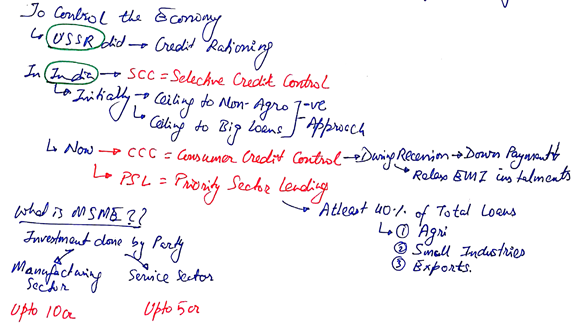 To Control the Economy
↳ USSR did → Credit Rationing
In India → SCC = Selective Credit Control
↳ Initially → Ceiling to Non-Agro ] -ve
↳ Ceiling to Big Loans ] Approach
↳ Now → CCC = Consumer Credit Control → During Recession → Down Payment↓
↳ Relax EMI instalments
↳ PSL = Priority Sector Lending
→ Atleast 40% of Total Loans
↳ ① Agri
② Small Industries
③ Exports.
What is MSME??
Investment done by Party
Manufacturing Sector
Service Sector
Upto 10cr
Upto 5cr